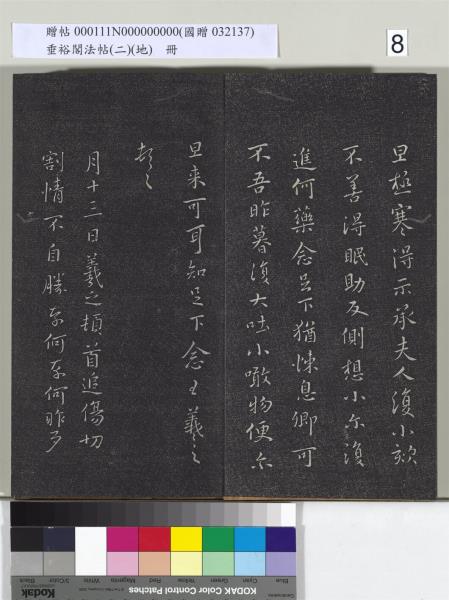 贈帖 000111N000000000(國贈 032137)
垂裕閣法帖(二)(地) 冊
8
旦極寒得示承夫人復小欬
不善得眠助反側想小尓復
進何藥念足下猶悚息卿可
不吾昨暮復大吐小噉物便尓
旦来可耳知足下念王羲之
頓之
月十三日羲之頓首追傷切
割情不自勝奈何奈何昨
Kodak
KODAK Color Control Patches
Blue
Cyan
Green
Yellow
Red
Magenta
White
3/Color
Black